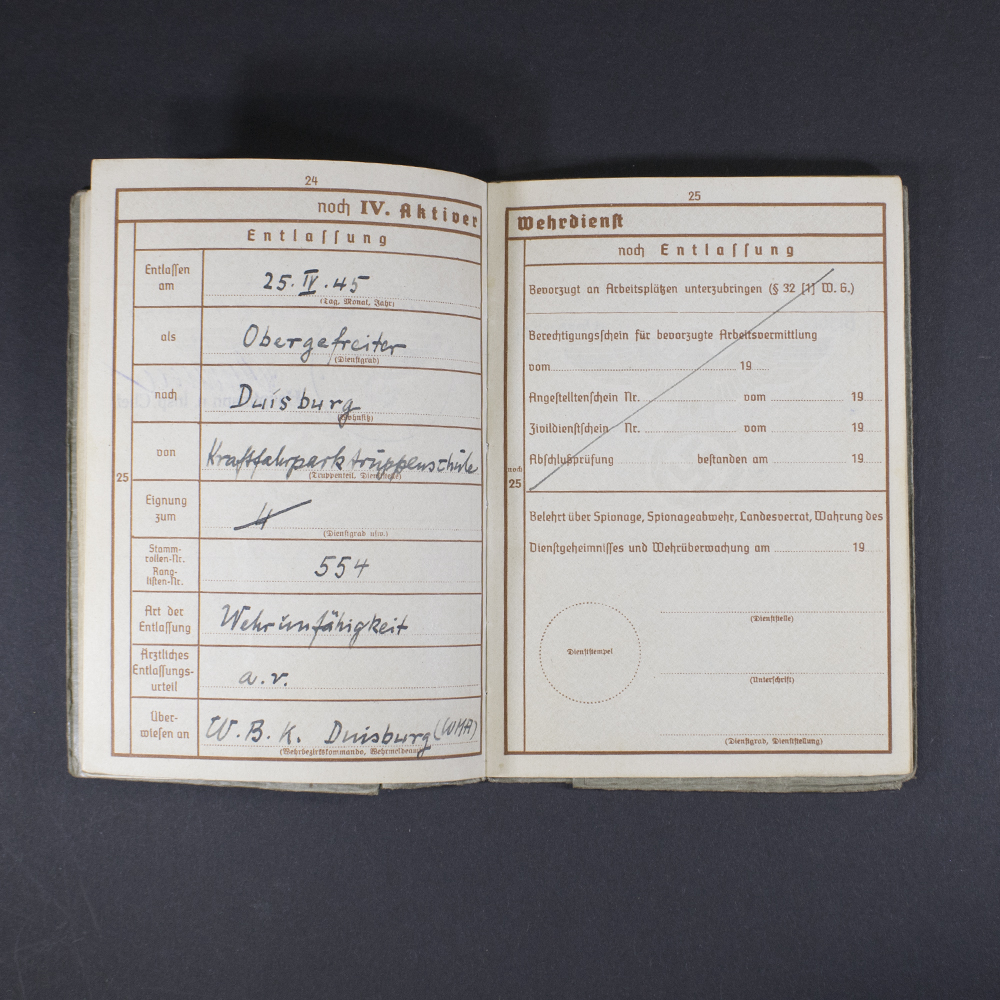 24
noch IV. Aktiver
Entlassung
Entlassen am
25. IV. 45
(Tag, Monat, Jahr)
als
Obergefreiter
(Dienstgrad)
nach
Duisburg
(Wohnsitz)
von
Kraftfahrparktruppenschule
(Truppenteil, Dienststelle)
25
Eignung zum
(Dienstgrad usw.)
Stamm-
rollen-Nr.
Rang-
listen-Nr.
554
Art der
Entlassung
Wehrunfähigkeit
Ärztliches
Entlassungs-
urteil
a.v.
Über-
wiesen an
W.B.K. Duisburg (WMA)
(Wehrbezirkskommando, Wehrmeldeamt)
25
Wehrdienst
noch Entlassung
Bevorzugt an Arbeitsplätzen unterzubringen (§ 32 [1] W. G.)
Berechtigungsschein für bevorzugte Arbeitsvermittlung
vom 19
Angestelltenschein Nr. vom 19
Zivildienstschein Nr. vom 19
Abschlußprüfung bestanden am 19
noch
25
Belehrt über Spionage, Spionageabwehr, Landesverrat, Wahrung des
Dienstgeheimnisses und Wehrüberwachung am 19
(Dienststelle)
Dienststempel
(Unterschrift)
(Dienstgrad, Dienststellung)